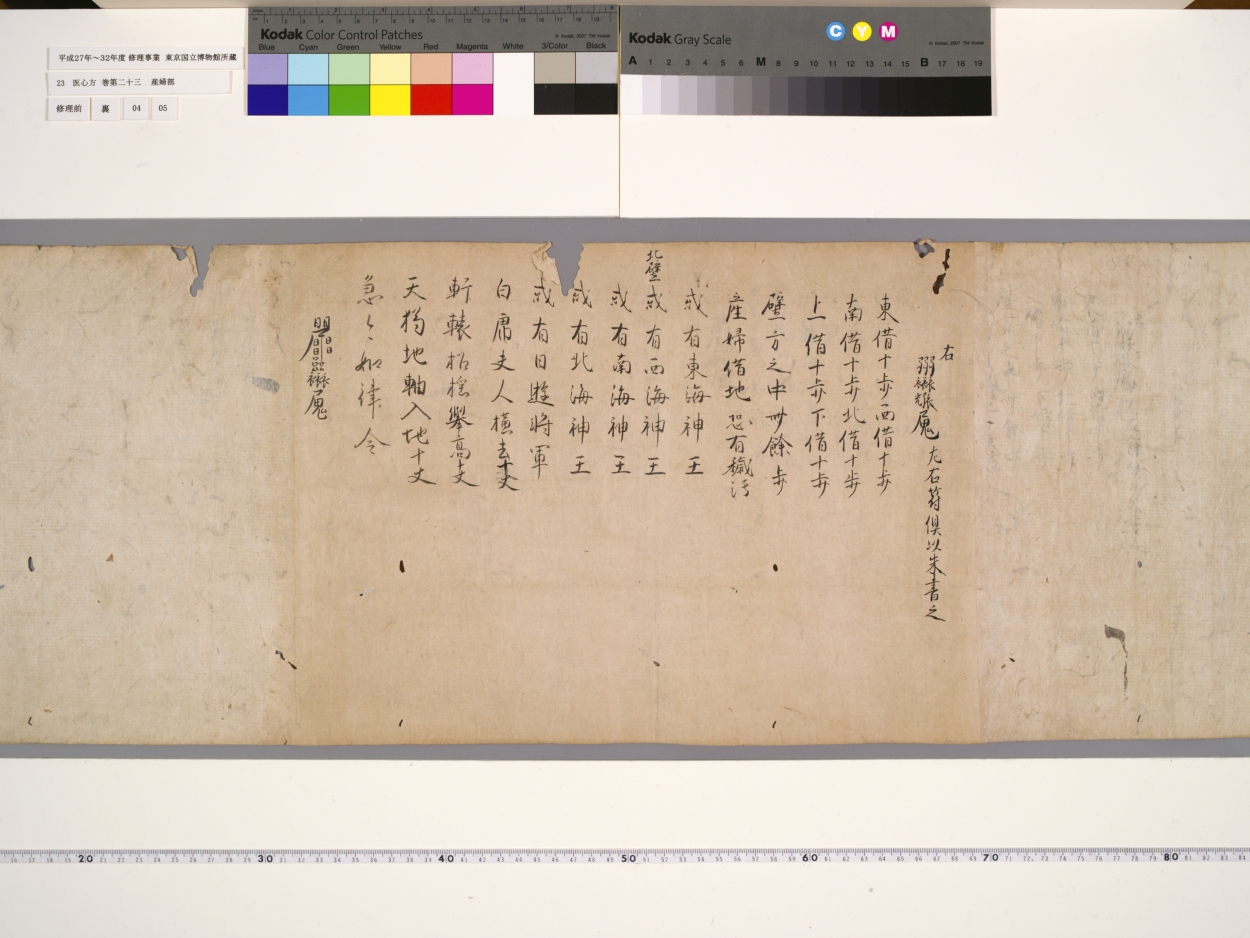 平成27年～32年度 修理事業 東京国立博物館所蔵
23 医心方 巻第二十三 産婦部
修理前 裏 04 05
Kodak Color Control Patches
© Kodak, 2007 TM: Kodak
Blue Cyan Green Yellow Red Magenta White 3/Color Black
Kodak Gray Scale
C Y M
© Kodak, 2007 TM: Kodak
A 1 2 3 4 5 6 M 8 9 10 11 12 13 14 15 B 17 18 19
右
左右符俱以朱書之
東借十步西借十步
南借十步北借十步
上借十步下借十步
壁方之中卌餘步
産婦借地恐有穢汚
或有東海神王
北壁
或有西海神王
或有南海神王
或有北海神王
或有日遊将軍
白席夫人横去十丈
軒轅招揺舉高十丈
天狗地軸入地十丈
急々如律令
20 30 40 50 60 70 80